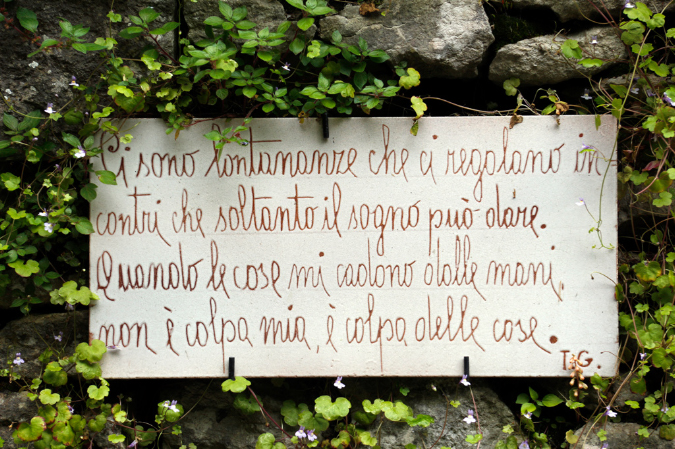 Ci sono lontananze che ci regalano in
contri che soltanto il sogno può dare.
Quando le cose mi cadono dalle mani,
non è colpa mia, è colpa delle cose.
T.G.